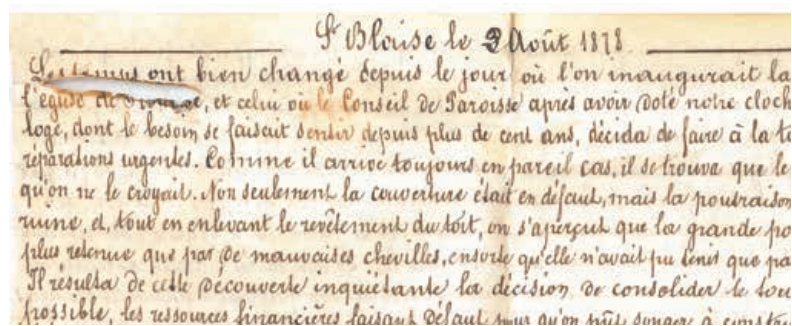 St Blaise le 2 Août 1878.
Les temps ont bien changé depuis le jour où l'on inaugurait la
l'église de, et celui où le Conseil de Paroisse après avoir doté notre cloch
loge, dont le besoin se faisait sentir depuis plus de cent ans, décida de faire à la to
réparations urgentes. Comme il arrive toujours en pareil cas, il se trouva que le
qu'on ne le croyait. Non seulement la couverture était en défaut, mais la poutraison
ruine, et, tout en enlevant le revêtement du toit, on s'aperçut que la grande po
plus retenue que par de mauvaises chevilles, ensorte qu'elle n'avait pu tenir que pa
Il résulta de cette découverte inquiétante la décision de consolider le tou
possible, les ressources financières faisant défaut pour qu'on pût songer à constru